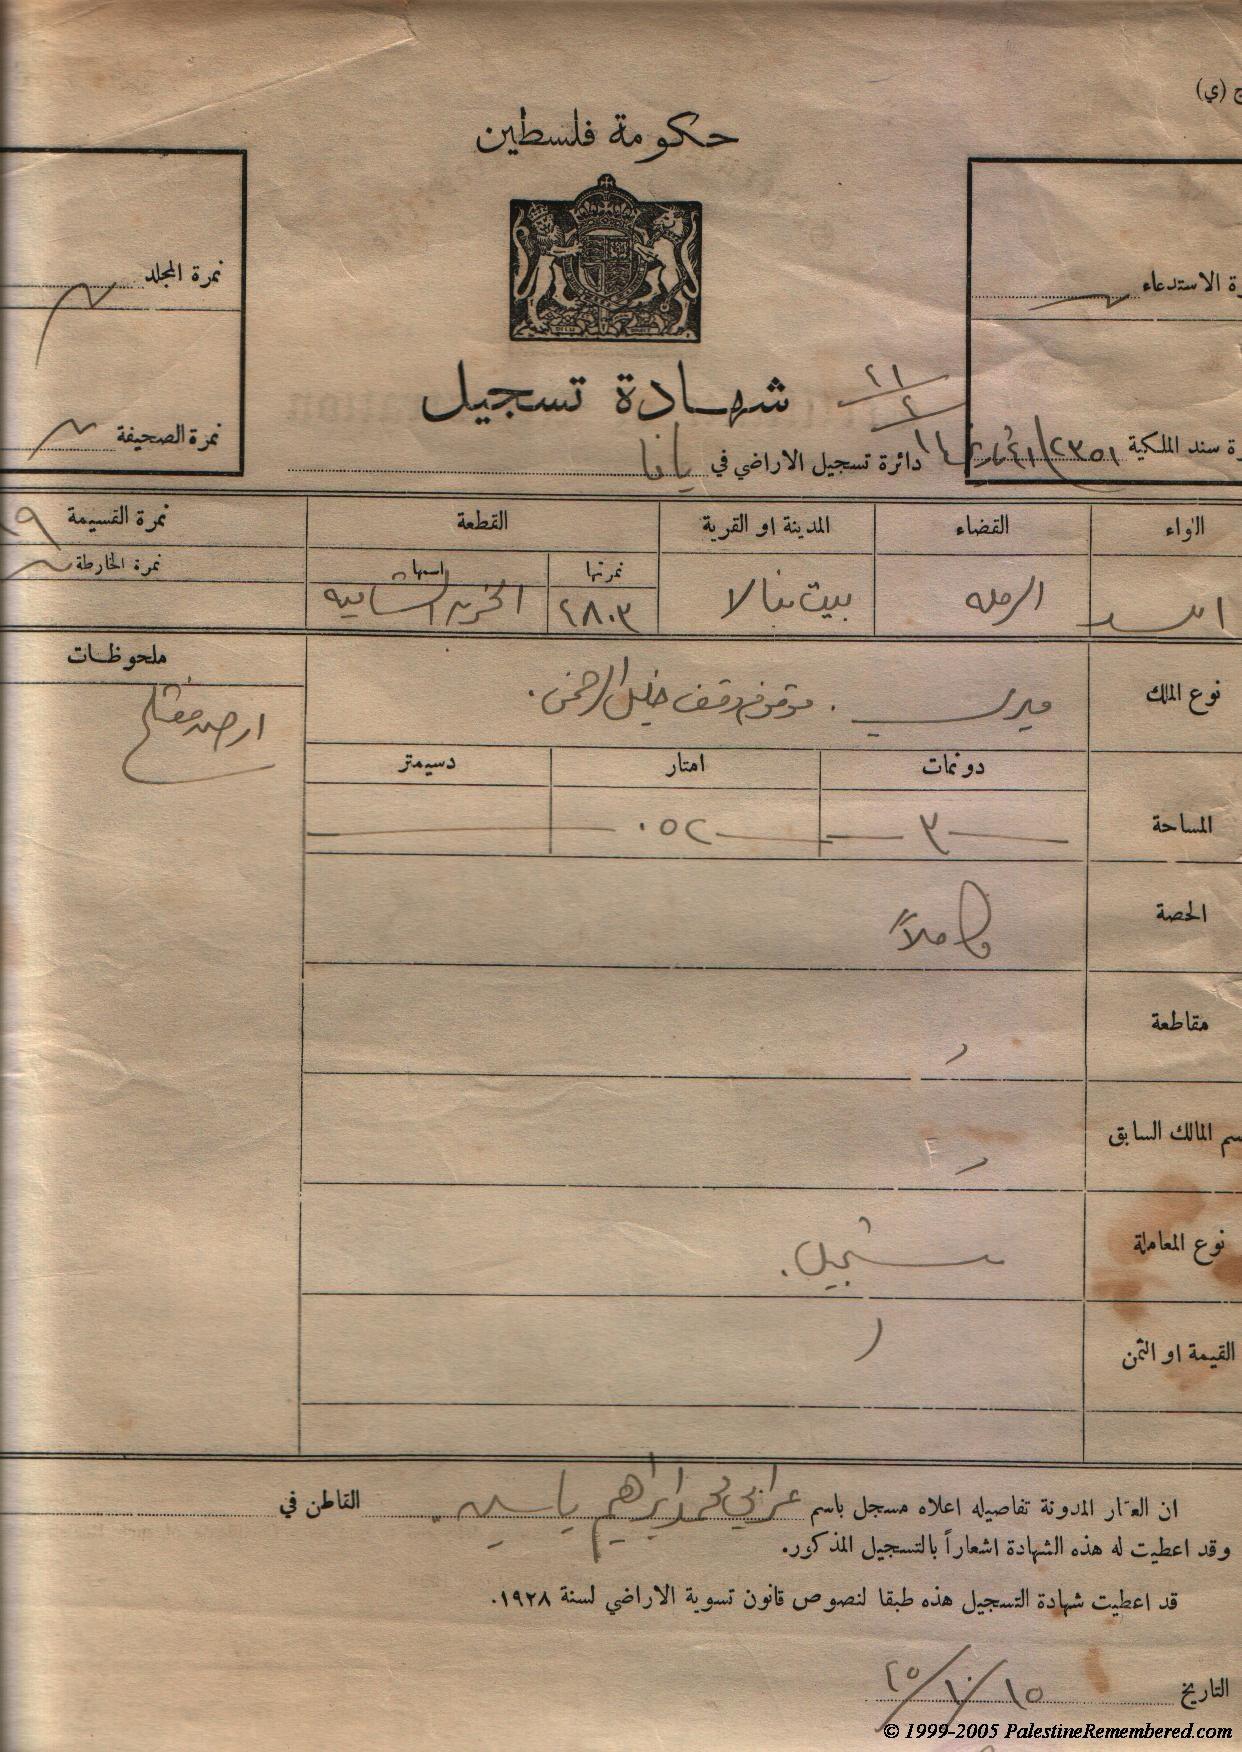 ج (ي)
حكومة فلسطين
نمرة المجلد
رة الاستدعاء
شهادة تسجيل
٢١/٢
نمرة الصحيفة
رة سند الملكية ٢٣٥١
دائرة تسجيل الاراضي في يافا
اللواء
القضاء
المدينة او القرية
القطعة
نمرة القسيمة ٩
نمرتها
اسمها
نمرة الخارطة
الرمله
بيت نبالا
٤٨٠٣
نوع الملك
ميري . موقوف وقف خليل الرحمن .
ملحوظات
ارض مفتلح
دونمات
امتار
دسيمتر
المساحة
٣
٠٥٢
الحصة
كاملاً
مقاطعة
سم المالك السابق
نوع المعاملة
تسجيل .
القيمة او الثمن
ان العقار المدونة تفاصيله اعلاه مسجل باسم عرابي محمد ابراهيم ياسين القاطن في
وقد اعطيت له هذه الشهادة اشعاراً بالتسجيل المذكور.
قد اعطيت شهادة التسجيل هذه طبقا لنصوص قانون تسوية الاراضي لسنة ١٩٢٨.
التاريخ ١٥/١٠/٤٥
© 1999-2005 PalestineRemembered.com